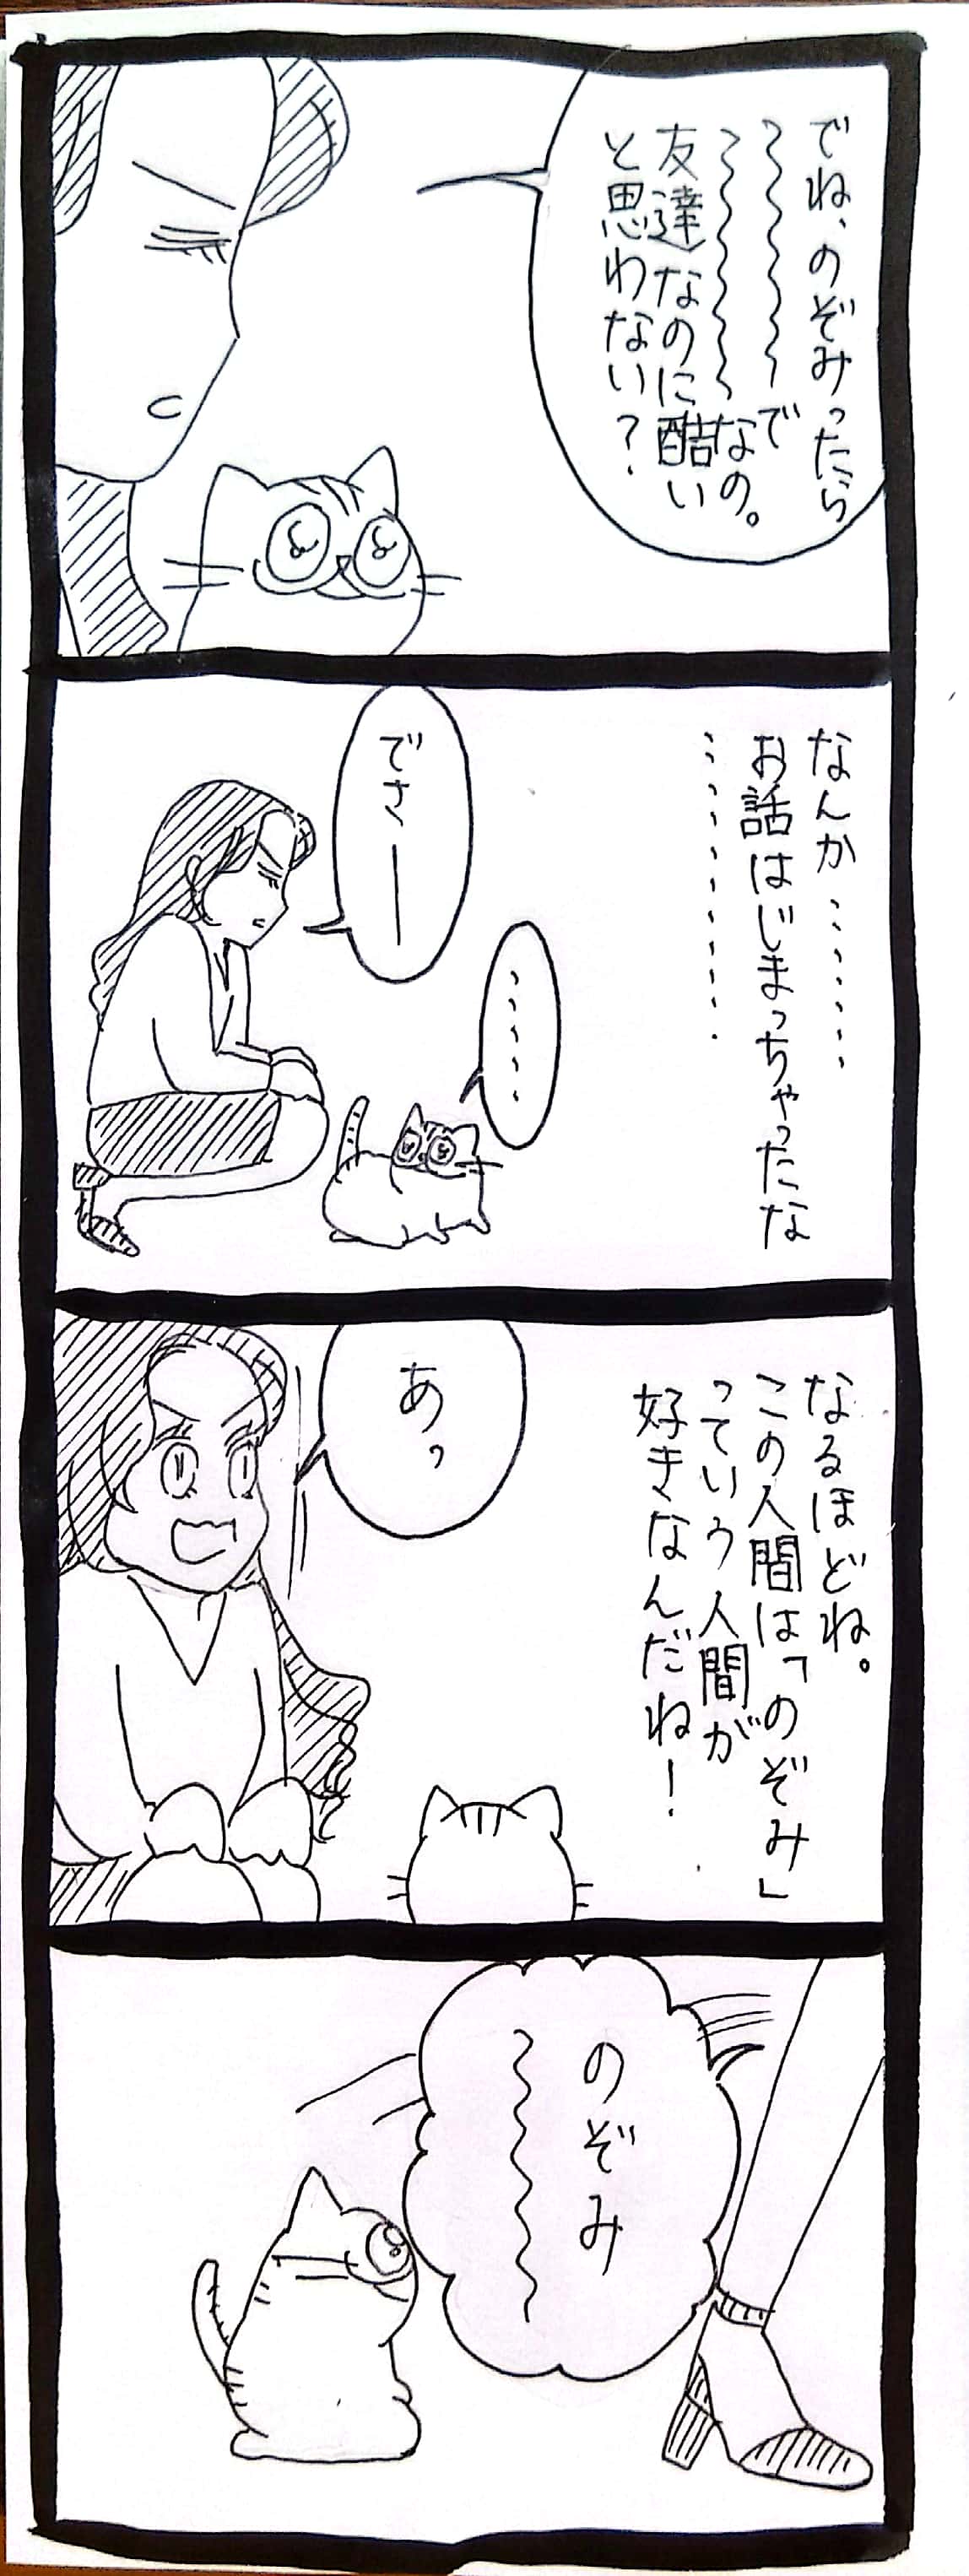 でね、のぞみったら
〜〜〜〜〜で
〜〜〜〜〜なの。
友達なのに酷い
と思わない？
なんか………
お話はじまっちゃったな
…………
でさー
……
なるほどね。
この人間は「のぞみ」
っていう人間が
好きなんだね！
あっ
のぞみ
〜〜〜〜〜